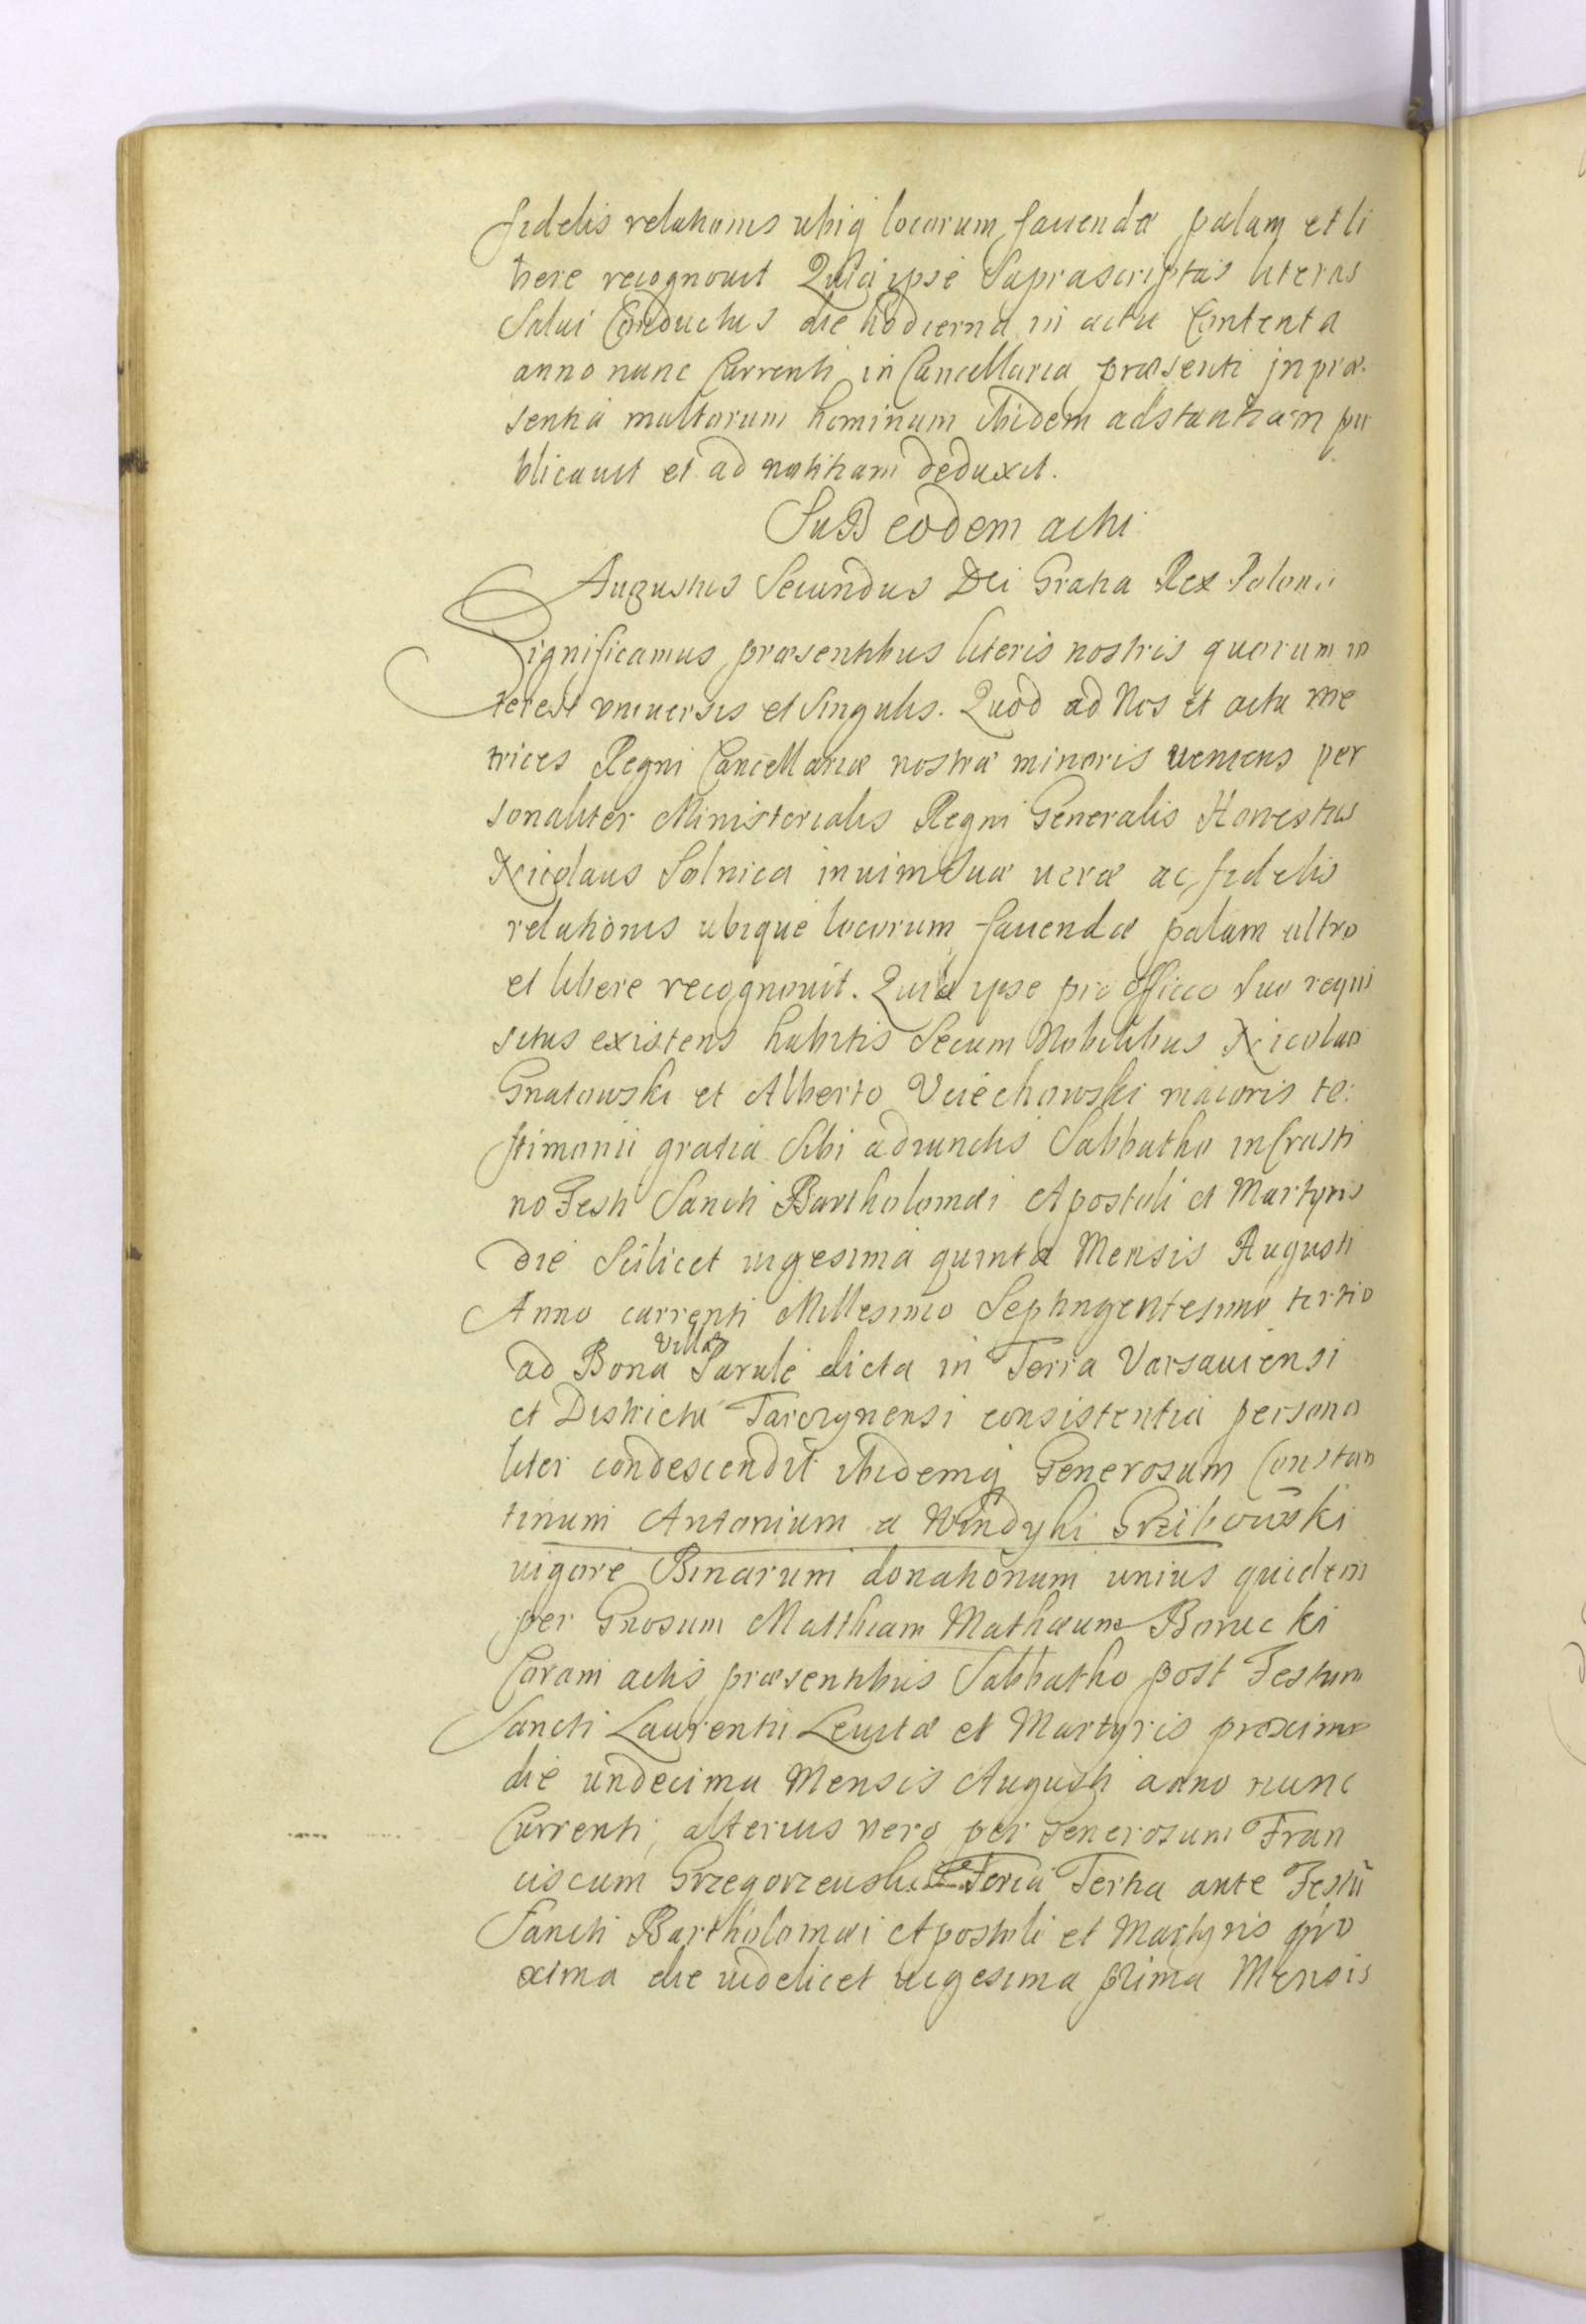 fidelis relationis ubiq locorum fauendæ palam et li
bere recognouit Quia ipse Suprascriptas literas
Salui Conductus die hodierna in actu Contenta
anno nunc Currenti in Cancellaria præsenti in præ-
sentia multorum hominum ibidem adstantium pu
blicauit et ad notitiam deduxit.
SuB eodem actu
Augustus Secundus Dei Gratia Rex Poloni
Significamus præsentibus literis nostris quorum in
terest vniuersis et Singulis. Quod ad Nos et acta me
trices Regni Cancellariæ nostræ minoris ueniens per
sonaliter Ministerialis Regni Generalis Honestus
Nicolaus Solnica in uim Suæ ueræ ac fidelis
relationis ubique locorum fauendæ palam ultro
et libere recognouit. Quia ipse pro officio Suo requi
situs existens habitis Secum Nobilibus Nicolao
Gnatowski et Alberto Vciechowski maioris te:
stimonii gratia Sibi adiunctis Sabbatho in Crasti
no Festi Sancti Bartholomæi Apostoli et Martyris
die Scilicet uigesima quinta Mensis Augusti
Anno currenti Millesimo Septingentesimo tertio
ad Bona Villæ Parule dicta in Terra Varsauiensi
et Districtu Tarczynensi consistentia persona
liter condescendit ibidemq Generosum Constan
tinum Antonium a Windyki Grzibowski
uigore Binarum donationum unius quidem
per Gnosum Matthiam Mathæum Borucki
Coram actis præsentibus Sabbatho post Festum
Sancti Laurentii Leuitæ et Martyris proximo
die undecima Mensis Augusti anno nunc
Currenti, alterius vero per Generosum Fran
ciscum Grzegorzewski Feria Tertia ante Festū
Sancti Bartholomæi Apostoli et Martyris pro
xima die uidelicet uigesima prima Mensis